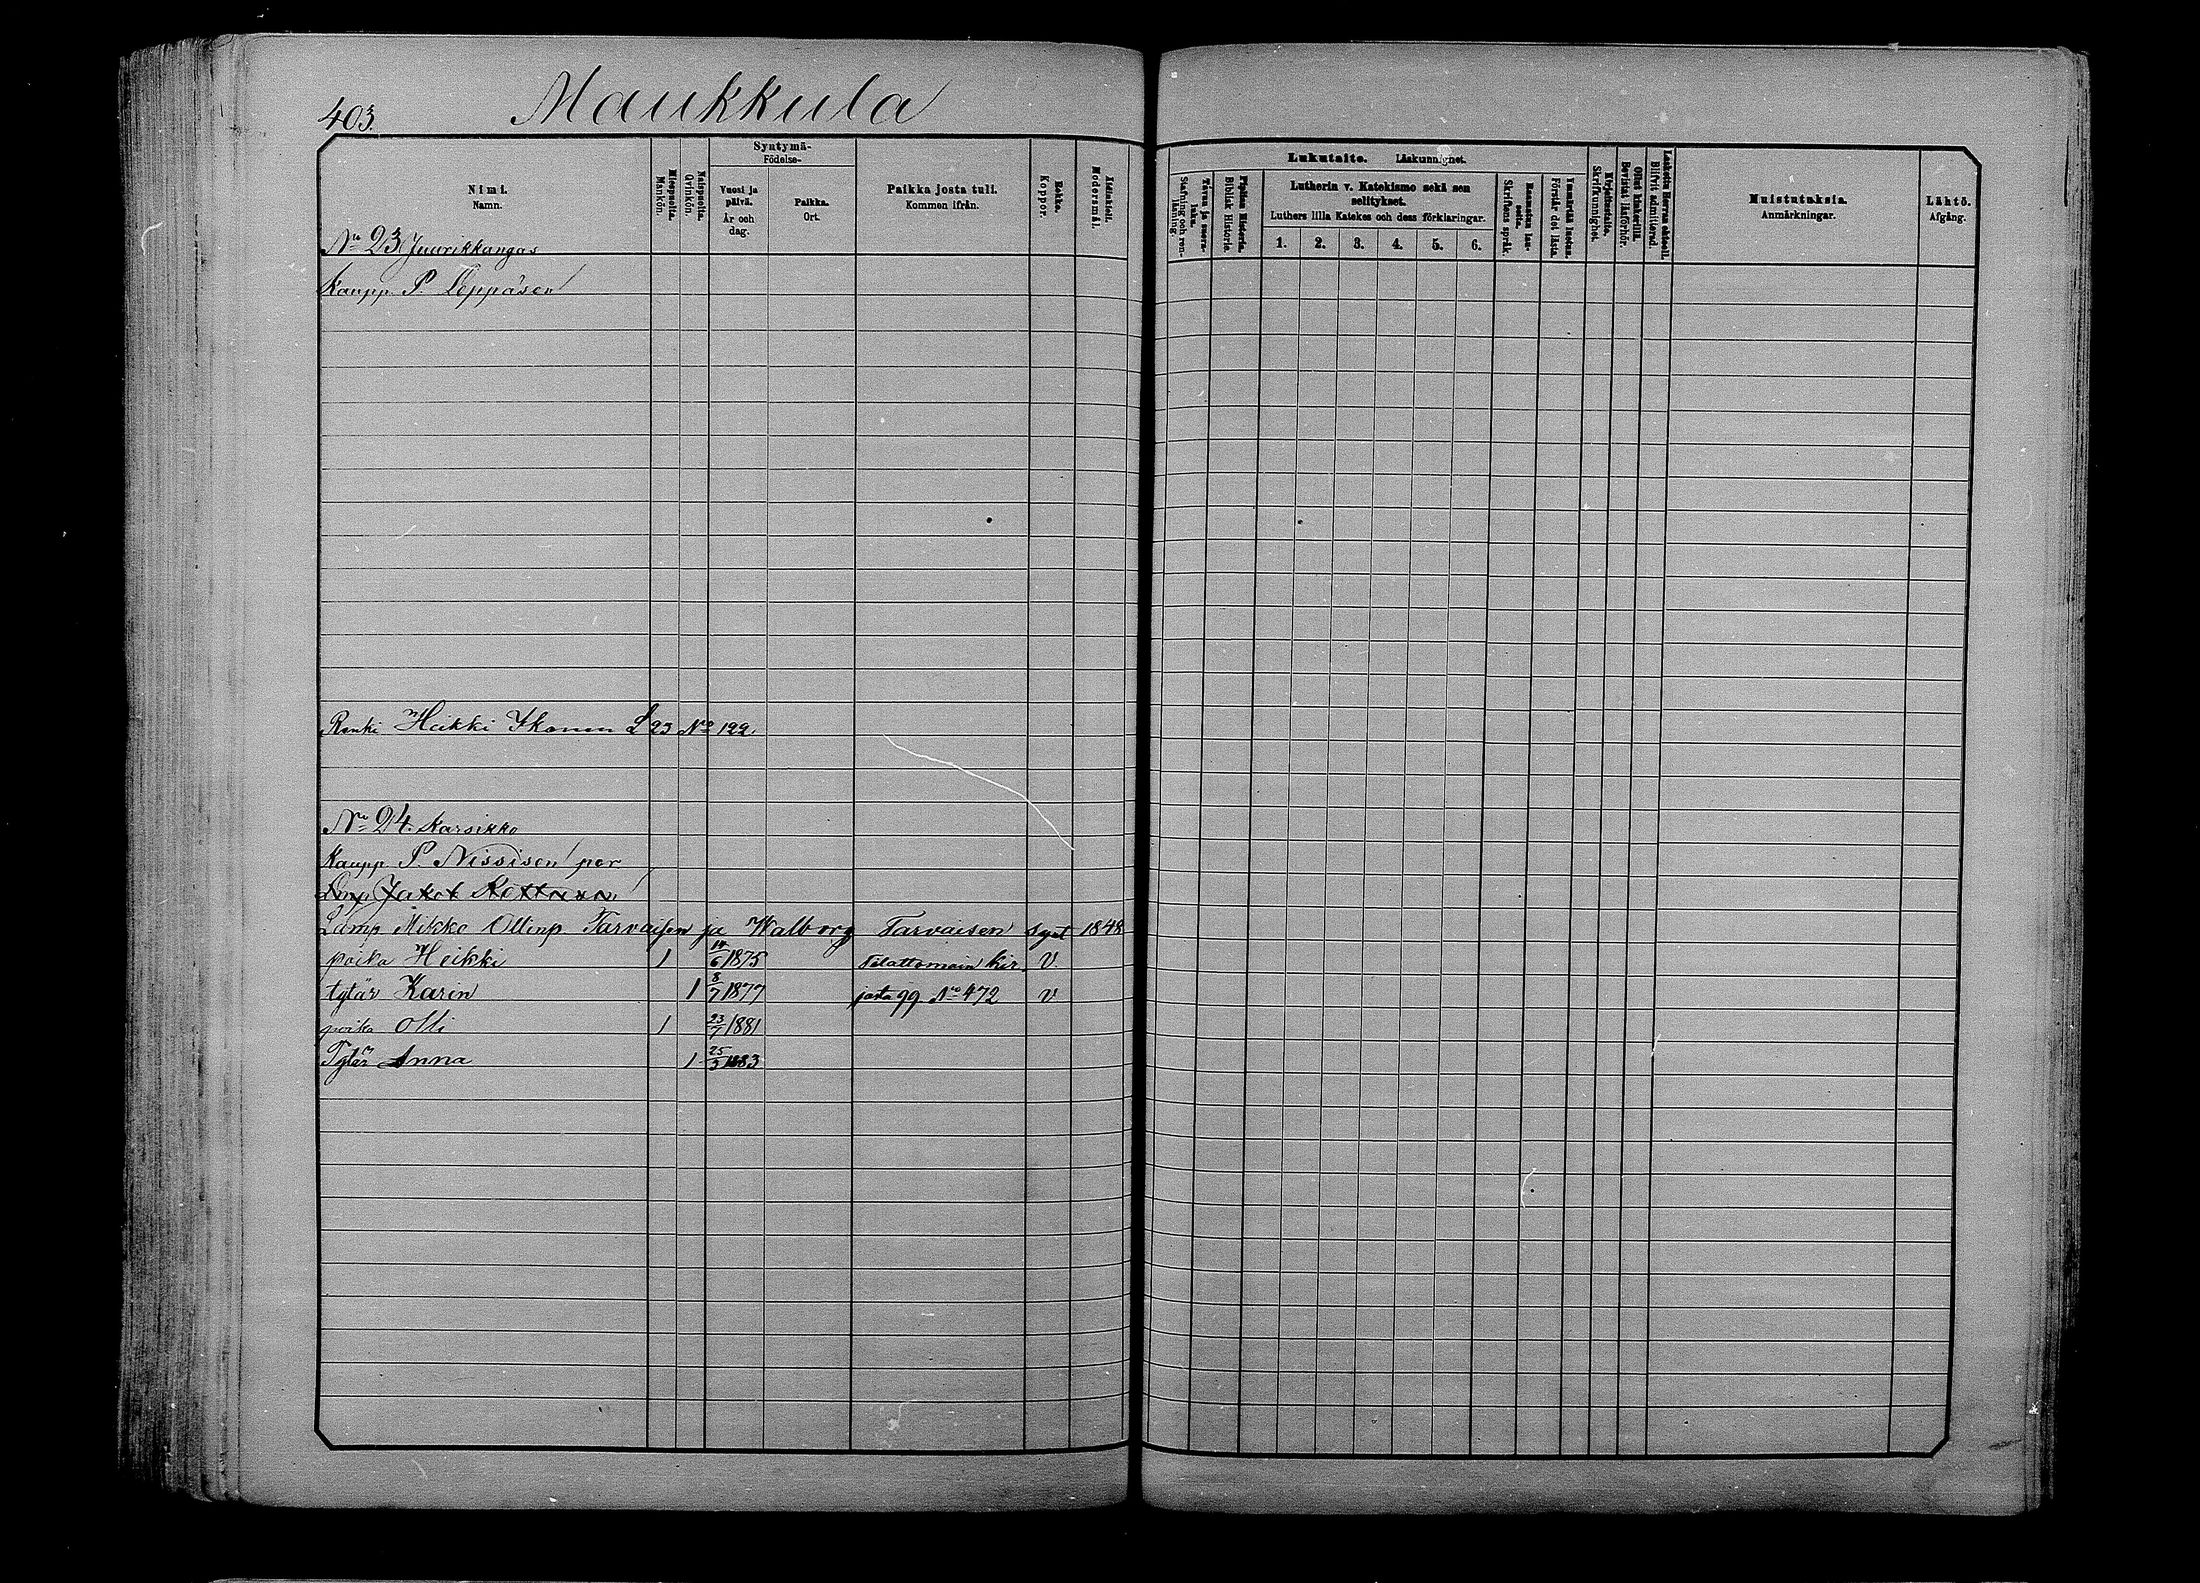 403.
Maukkula
Nimi.
Namn.
Miespuolia.
Mankön.
Naispuolia.
Qvinkön.
Syntymä-
Födelse-
Vuosi ja päivä.
År och dag.
Paikka.
Ort.
Paikka josta tuli.
Kommen ifrån.
Rokko.
Koppor.
Äidinkieli.
Modersmål.
Tavuu ja suora-luku.
Stafning och ren-läsning.
Piplian Historia.
Biblisk Historie.
Lukutaito. Läskunnighet.
Lutherin v. Katekismo sekä sen selitykset.
Luthers lilla Katekes och dess förklaringar.
1. 2. 3. 4. 5. 6.
Raamatun lau-seita.
Skriftens språk.
Ymmärtää luetun.
Förstår det lästa.
Kirjoitustaito.
Skriftkunnighet.
Ollut kinkerillä.
Bevistat läsförhör.
Laskettu Herran ehtooll.
Blifvit admitterad.
Muistutuksia.
Anmärkningar.
Lähtö.
Afgång.
No 23 Juurikkangas
Kaupp. P. Leppäsen
Renki Heikki Ikonen L 23 No 122.
No 24. Karsikko
Kaupp P. Nissisen per
Lamp Mikko Ollinp Tarvaisen ja Walborg Tarvaisen synt 1848
poika Heikki 1 14/6 1875 tilattomain kir. V.
tytär Karin 1 8/7 1877 josta 99 No 472 V
poika Olli 1 23/7 1881
Tytär Anna 1 25/3 1883